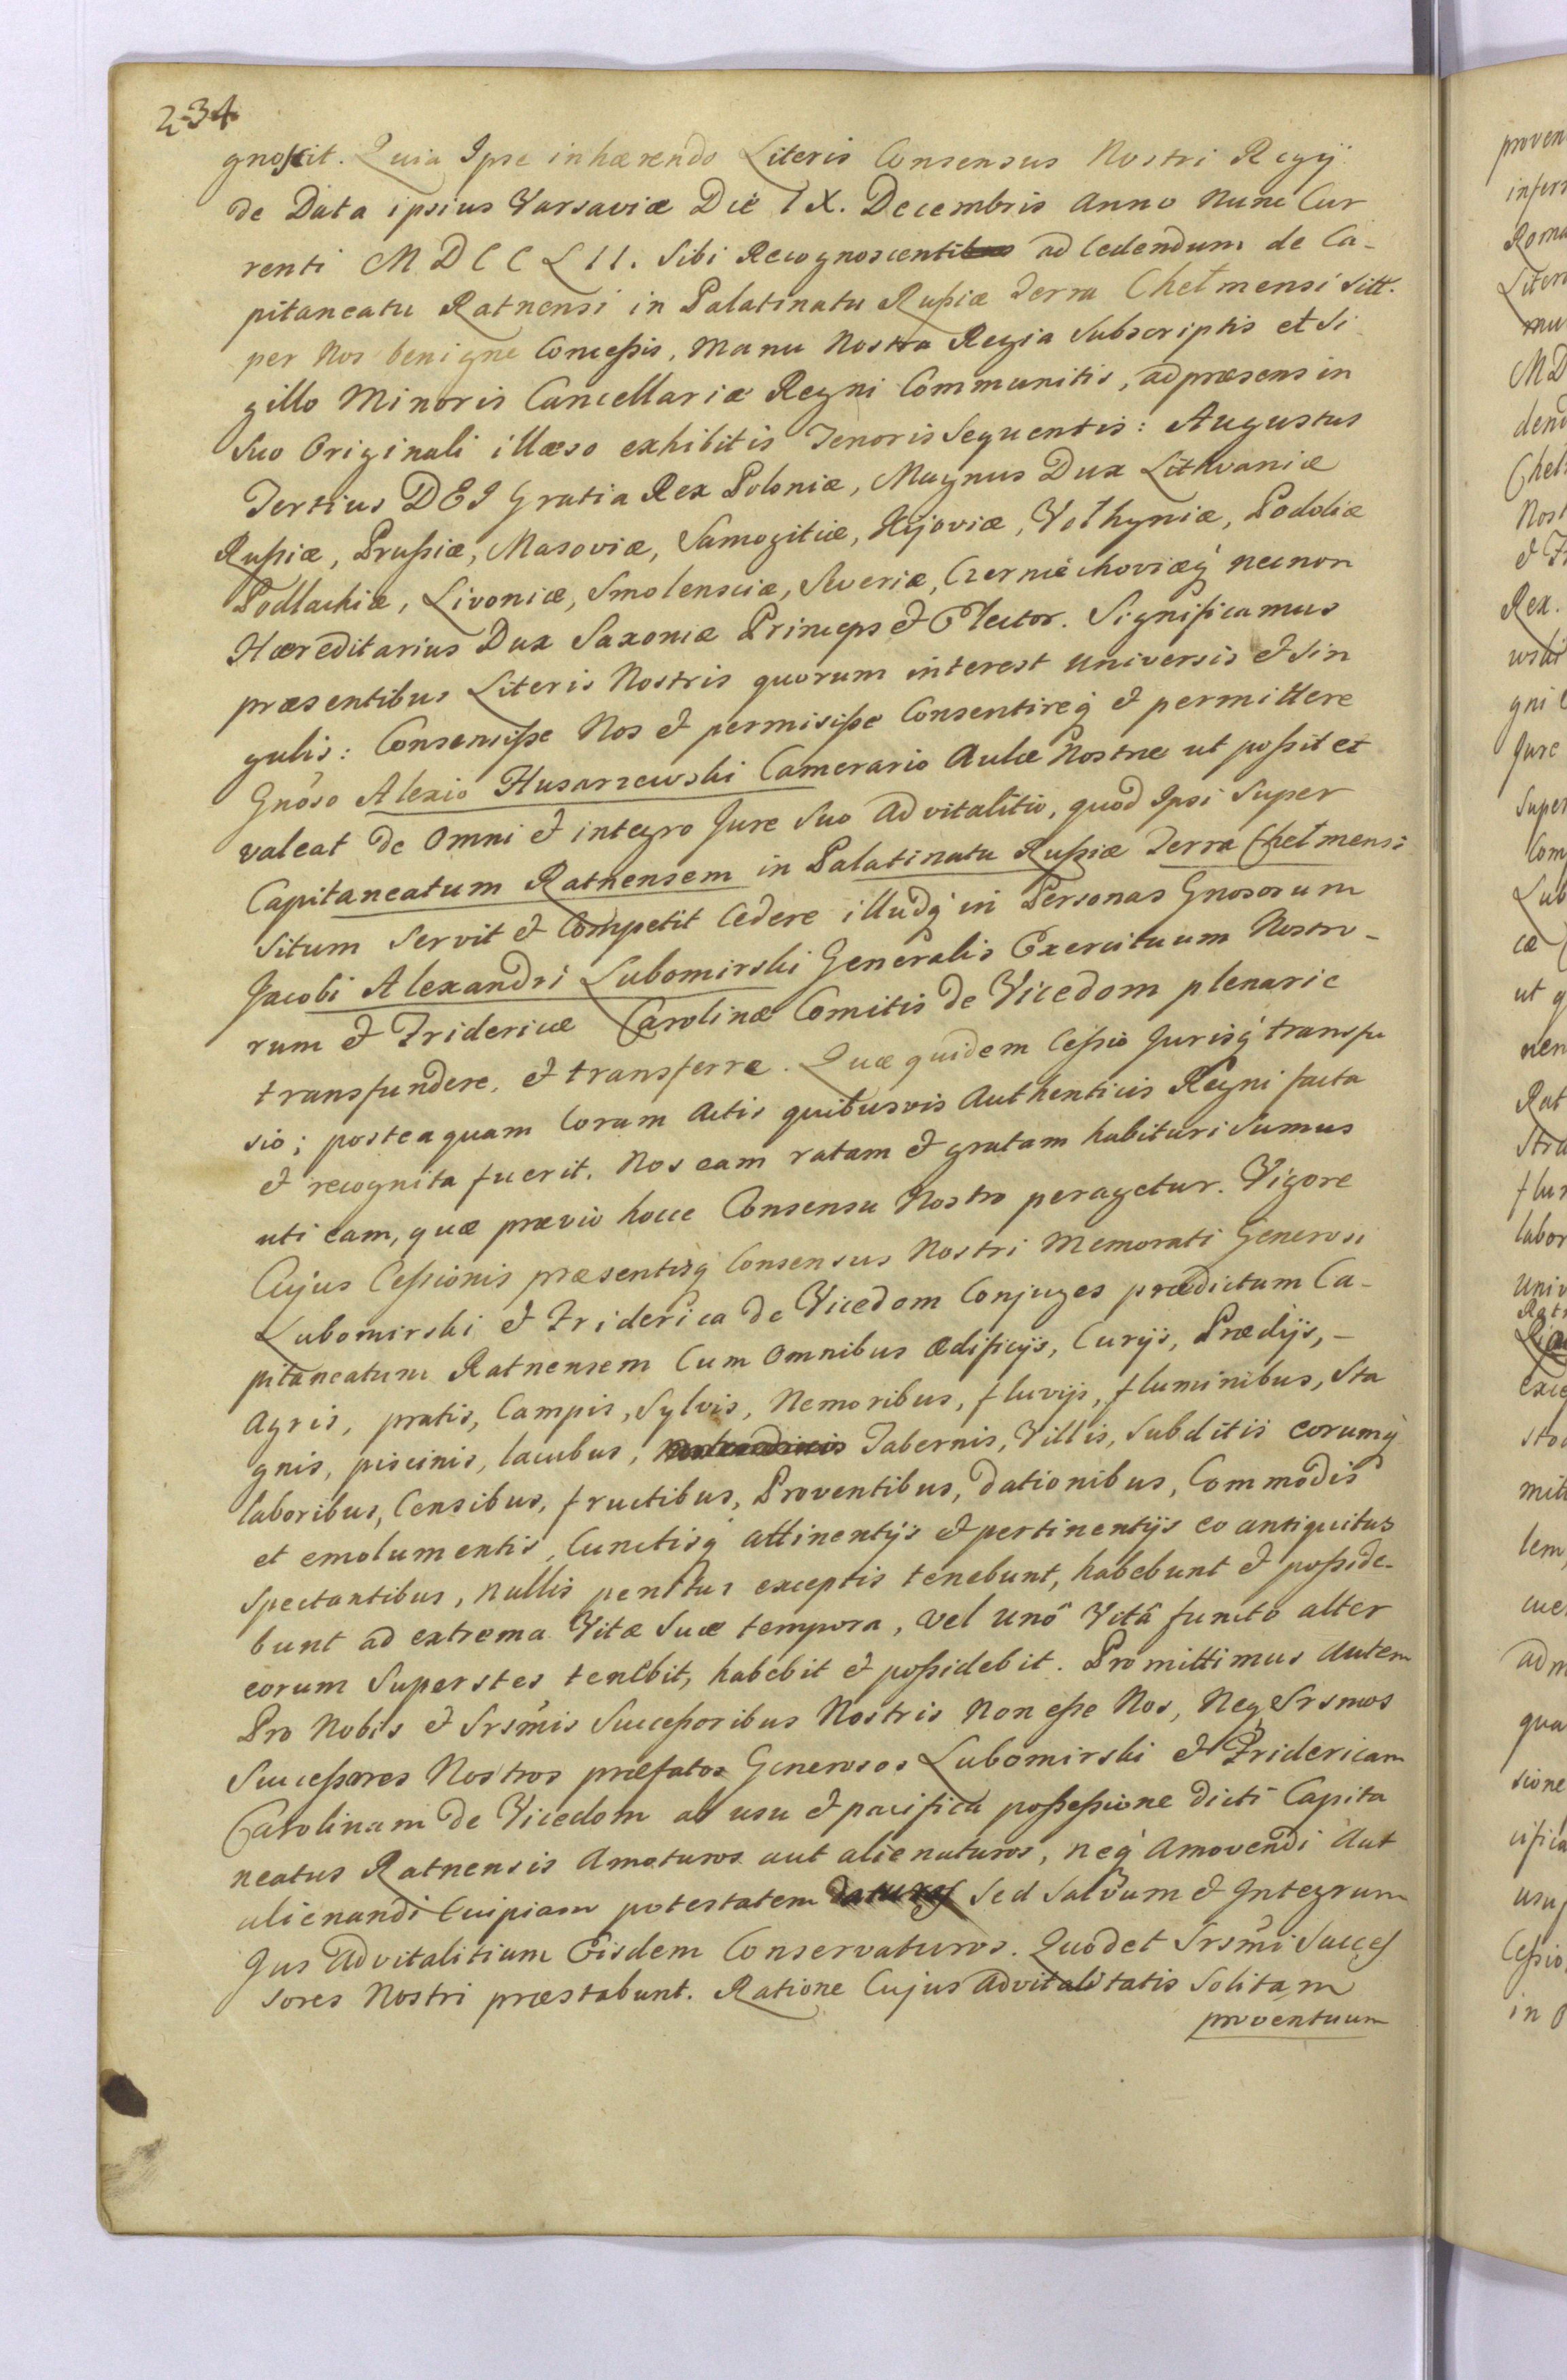 234
gnoscit. Quia Ipse inhærendo Literis Consensus Nostri Regij
de Data ipsius Varsaviæ Die IX. Decembris Anno Nunc Cur
renti MDCCLII. Sibi Recognoscenti ad Cedendum de Ca-
pitaneatu Ratnensi in Palatinatu Rußiæ Terra Chełmensi sitt.
per Nos benigne Conceßis, Manu Nostra Regia Subscriptis et Si
gillo Minoris Cancellariæ Regni Communitis, ad præsens in
Suo Originali illæso exhibitis Tenoris Sequentis: Augustus
Tertius DEI Gratia Rex Poloniæ, Magnus Dux Lithvaniæ
Rußiæ, Prußiæ, Masoviæ, Samogitiæ, Kijoviæ, Vołhyniæ, Podoliæ
Podlachiæ, Livoniæ, Smolensciæ, Severiæ, Czerniechoviæq' necnon
Hæreditarius Dux Saxoniæ Princeps et Elector. Significamus
præsentibus Literis Nostris quorum interest universis et Sin
gulis: Consensiße Nos et permisiße Consentireq' et permittere
Gnoso Alexio Husarzewski Camerario Aulæ Nostræ ut poßit et
valeat de Omni et integro Jure Suo Advitalitio, quod Ipsi Super
Capitaneatum Ratnensem in Palatinatu Rußiæ Terra Chełmensi
Situm Servit et Competit Cedere illudq' in Personas Gnosorum
Jacobi Alexandri Lubomirski Generalis Exercituum Nostro-
rum et Fridericæ Carolinæ Comitis de Vicedom plenarie
transfundere, et transferre. Quæ quidem Ceßio Jurisq' transfu
sio; posteaquam Coram Actis quibusvis Authenticis Regni facta
et recognita fuerit. Nos eam ratam et gratam habituri Sumus
uti eam, quæ prævio hocce Consensu Nostro peragetur. Vigore
Cujus Ceßionis præsentisq' Consensus Nostri Memorati Generosi
Lubomirski et Friderica de Vicedom Conjuges prædictum Ca-
pitaneatum Ratnensem Cum Omnibus Ædificijs, Curijs, Prædijs, -
Agris, pratis, Campis, Sylvis, Nemoribus, fluvijs, fluminibus, Sta
gnis, piscinis, lacubus, Tabernis, Villis, Subditis eorumq'
laboribus, Censibus, fructibus, Proventibus, dationibus, Commodis
et emolumentis, Cunctisq' attinentijs et pertinentijs eo antiquitus
Spectantibus, Nullis penitus exceptis tenebunt, habebunt et poßide-
bunt ad extrema Vitæ Suæ tempora, vel unô Vitâ functo alter
eorum Superstes tenebit, habebit et poßidebit. Promittimus Autem
Pro Nobis et Srsmis Succeßoribus Nostris Non eße Nos, Neq' Srsmos
Succeßores Nostros præfatos Generosos Lubomirski et Fridericam
Carolinam de Vicedom ab usu et pacifica poßeßione dicti Capita
neatus Ratnensis Amoturos aut alienaturos, neq' Amovendi Aut
alienandi Cuipiam potestatem daturos Sed Salvum et Integrum
Jus Advitalitium Eisdem Conservaturos. Quod et Srsmi Succes
sores Nostri præstabunt. Ratione Cujus Advitalitatis Solitam
proventuum